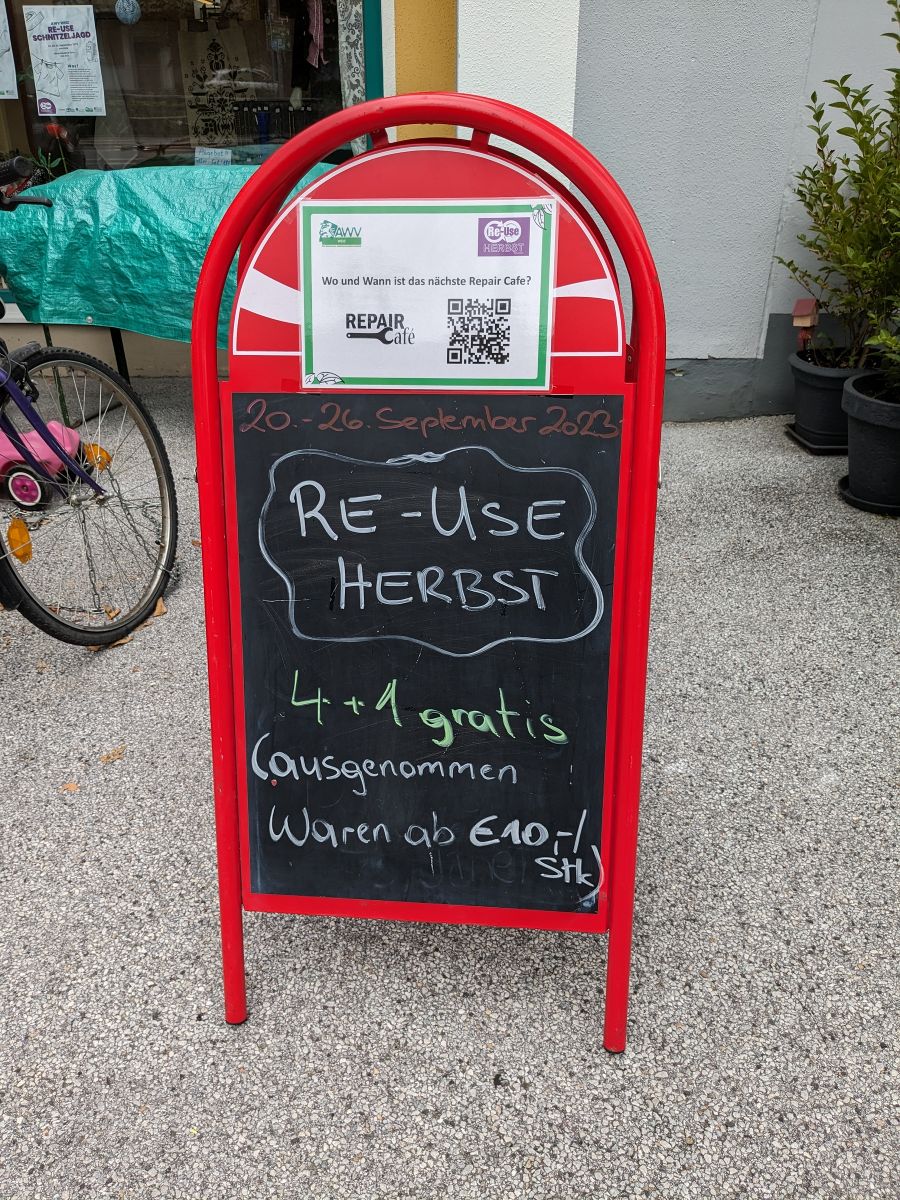 RE-USE
SCHNITZELJAGD
AWV
Re-Use
HERBST
Wo und Wann ist das nächste Repair Cafe?
REPAIR
Café
20.-26. September 2023
RE-USE
HERBST
4+1 gratis
(ausgenommen
Waren ab €10,-/
Stk)